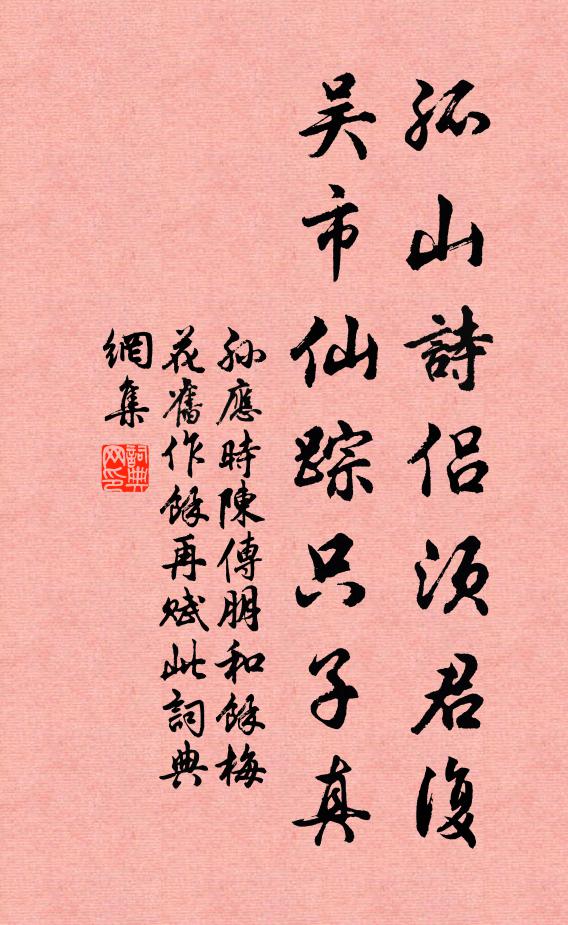 孤山詩侶須君復
吳市仙踪只子真
孫應時陳傅朋和餘梅
花舊作餘再賦此詞典
網集
詞典網印